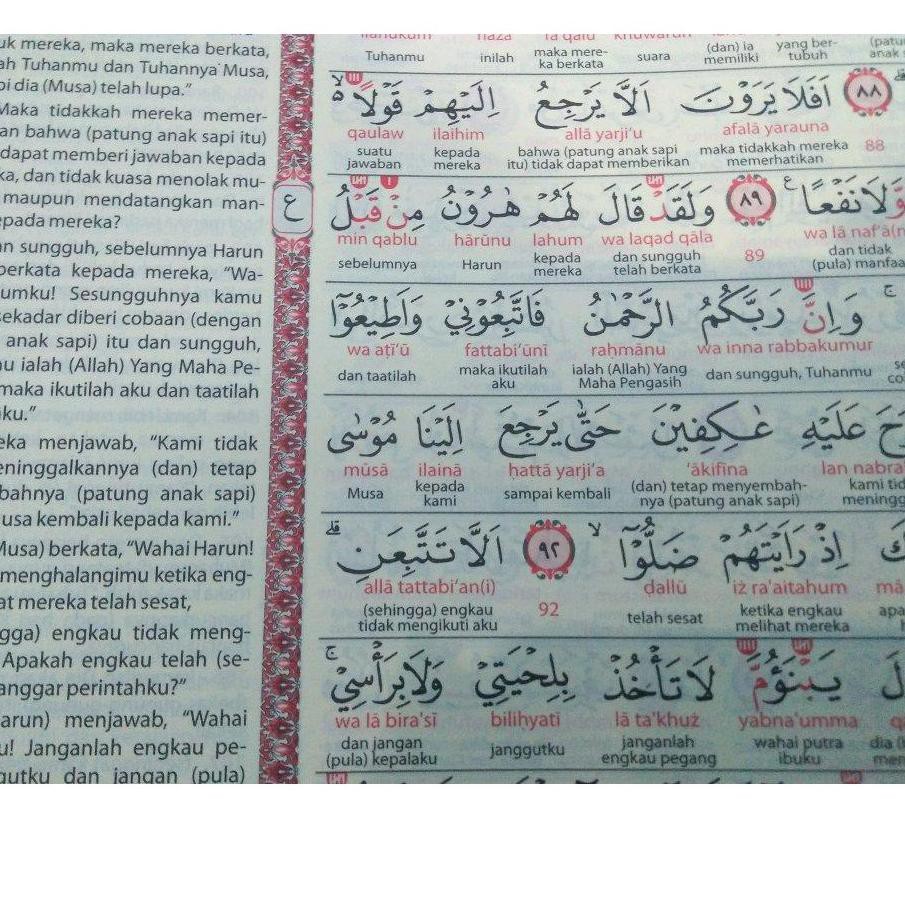 uk mereka, maka mereka berkata,
ah Tuhanmu dan Tuhannya Musa,
pi dia (Musa) telah lupa."
Maka tidakkah mereka memer-
an bahwa (patung anak sapi itu)
dapat memberi jawaban kepada
ka, dan tidak kuasa menolak mu-
maupun mendatangkan man-
epada mereka?
an sungguh, sebelumnya Harun
berkata kepada mereka, "Wa-
umku! Sesungguhnya kamu
sekadar diberi cobaan (dengan
anak sapi) itu dan sungguh,
u ialah (Allah) Yang Maha Pe-
maka ikutilah aku dan taatilah
ku."
eka menjawab, "Kami tidak
eninggalkannya (dan) tetap
bahnya (patung anak sapi)
usa kembali kepada kami."
Musa) berkata, "Wahai Harun!
menghalangimu ketika eng-
at mereka telah sesat,
gga) engkau tidak meng-
Apakah engkau telah (se-
anggar perintahku?"
arun) menjawab, "Wahai
u! Janganlah engkau pe-
gutku dan jangan (pula)
ع
Tuhanmu inilah maka mere- suara (dan) ia yang ber- (patu
ka berkata memiliki tubuh anak
٨٨ اَفَلَا يَرَوْنَ اَلَّا يَرْجِعُ اِلَيْهِمْ قَوْلًا ەۙ
qaulaw ilaihim allā yarji'u afalā yarauna 88
suatu kepada bahwa (patung anak sapi maka tidakkah mereka
jawaban mereka itu) tidak dapat memberikan memerhatikan
وَّلَا نَفْعًا ࣖ ٨٩ وَلَقَدْ قَالَ لَهُمْ هٰرُوْنُ مِنْ قَبْلُ
min qablu hārūnu lahum wa laqad qāla 89 wa lā naf'ā(n
sebelumnya Harun kepada dan sungguh dan tidak
mereka telah berkata (pula) manfaa
ۚ وَاِنَّ رَبَّكُمُ الرَّحْمٰنُ فَاتَّبِعُوْنِيْ وَاَطِيْعُوْٓا
wa aṭī'ū fattabi'ūnī raḥmānu wa inna rabbakumur
dan taatilah maka ikutilah ialah (Allah) Yang dan sungguh, Tuhanmu
aku Maha Pengasih
حَ عَلَيْهِ عٰكِفِيْنَ حَتّٰى يَرْجِعَ اِلَيْنَا مُوْسٰى
mūsā ilainā ḥattā yarji'a 'ākifīna lan nabra
Musa kepada sampai kembali (dan) tetap menyembah- kami tid
kami nya (patung anak sapi) meningg
كَ اِذْ رَاَيْتَهُمْ ضَلُّوْٓا ۙ ٩٢ اَلَّا تَتَّبِعَنِۗ
allā tattabi'an(i) 92 ḍallū iż ra'aitahum mā
(sehingga) engkau telah sesat ketika engkau apa
tidak mengikuti aku melihat mereka
لَ يَبْنَؤُمَّ لَا تَأْخُذْ بِلِحْيَتِيْ وَلَا بِرَأْسِيْۚ
wa lā bira'sī biliḥyatī lā ta'khuż yabna'umma q
dan jangan janggutku janganlah wahai putra dia (
(pula) kepalaku engkau pegang ibuku men